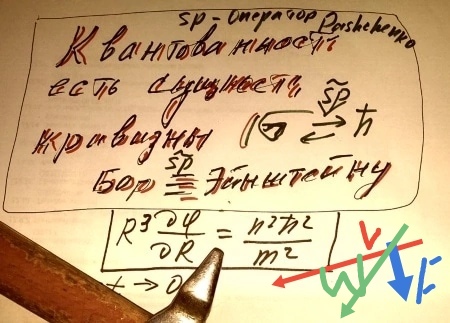 sp - оператор Pashchenko
Квантованность
есть сущность
кривизны
s̃p
ħ
Бор s̃p ≡ Эйнштейну
R³ ∂φ/∂R = n²ħ²/m²
t → 0
V
W
F